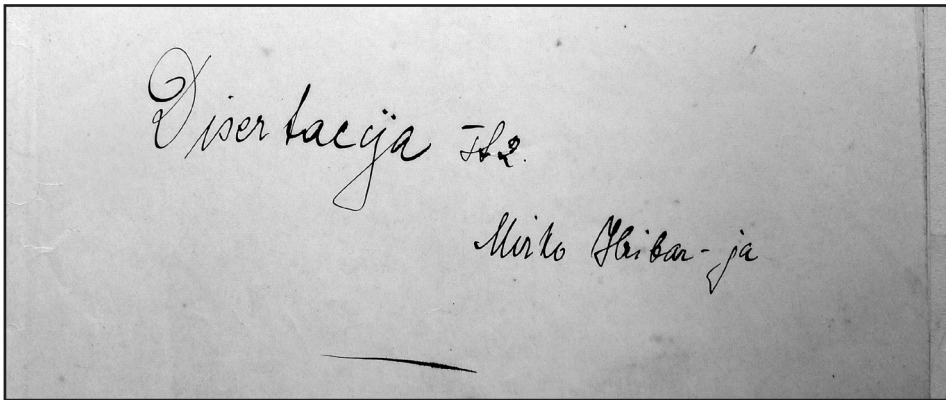 Disertacija
Mirko Hribar-ja